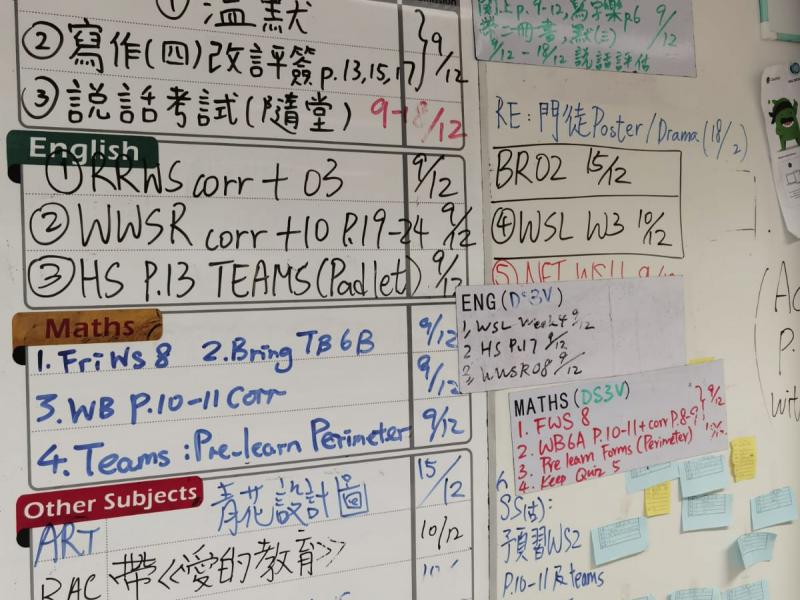 ① 溫默
② 寫作(四)改評簽 p.13,15,17 } 9/12
③ 說話考試(隨堂) 9-18/12
English
① RRWS corr + 03 9/12
② WWSR corr +10 P.19-24 9/12
③ HS P.13 TEAMS (Padlet) 9/12
Maths
1. Fri WS 8 2. Bring TB 6B 9/12
3. WB P.10-11 Corr 9/12
4. Teams : Pre-learn Perimeter 9/12
Other Subjects
ART 青花設計圖 15/12
RAC 帶《愛的教育》 10/12
p.9-12, 寫字樂 p6 9/12
帶二冊書, 默(三)
9/12 - 18/12 說話評估
RE: 門徒 Poster / Drama (18/2)
BR02 15/12
④ WSL W3 10/12
⑤ NET WS11 9/12
ENG (DS3V)
1, WSL Week 4 9/12
2 HS P.17 9/12
3, WWSR08 9/12
MATHS (DS3V)
1. FWS 8
2. WB6A P.10-11 + corr P.8-9 } 9/12
3. Pre learn Forms (Perimeter)
4. Keep Quiz 5
預習WS2
P.10-11 及 teams
P.
with